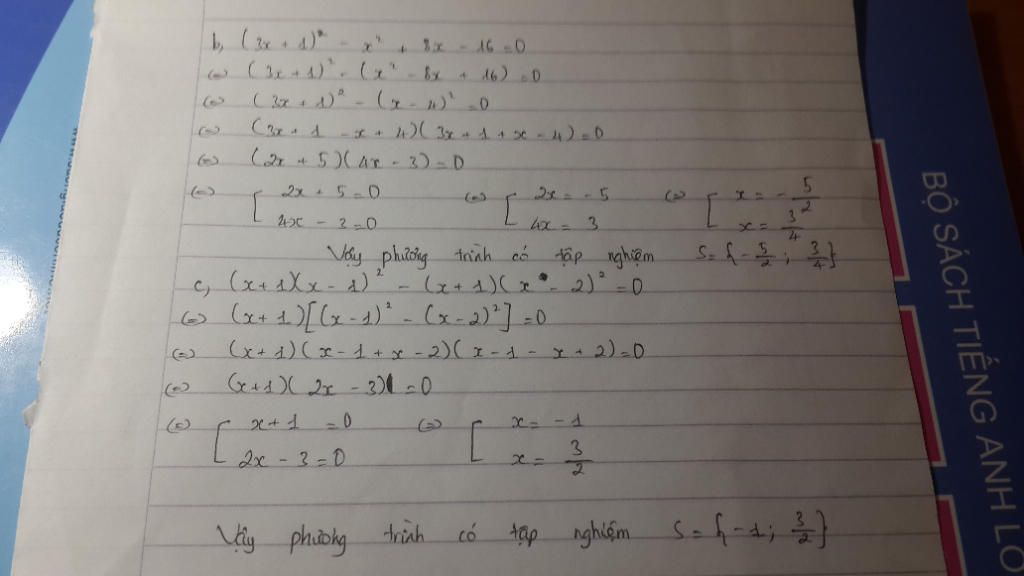 b, (3x + 1)² - x² + 8x - 16 = 0
(=) (3x + 1)² - (x² - 8x + 16) = 0
(=) (3x + 1)² - (x - 4)² = 0
(=) (3x + 1 - x + 4)(3x + 1 + x - 4) = 0
(=) (2x + 5)(4x - 3) = 0
(=) [ 2x + 5 = 0 (=) [ 2x = -5 (=) [ x = -5/2
4x - 3 = 0 4x = 3 x = 3/4
Vậy phương trình có tập nghiệm S = {-5/2 ; 3/4}
c, (x+1)(x - 1)² - (x + 1)(x - 2)² = 0
(=) (x + 1)[(x - 1)² - (x - 2)²] = 0
(=) (x + 1)(x - 1 + x - 2)(x - 1 - x + 2) = 0
(=) (x+1)(2x - 3)1 = 0
(=) [ x + 1 = 0 (=) [ x = -1
2x - 3 = 0 x = 3/2
Vậy phương trình có tập nghiệm S = {-1 ; 3/2}
BỘ SÁCH TIẾNG ANH LO